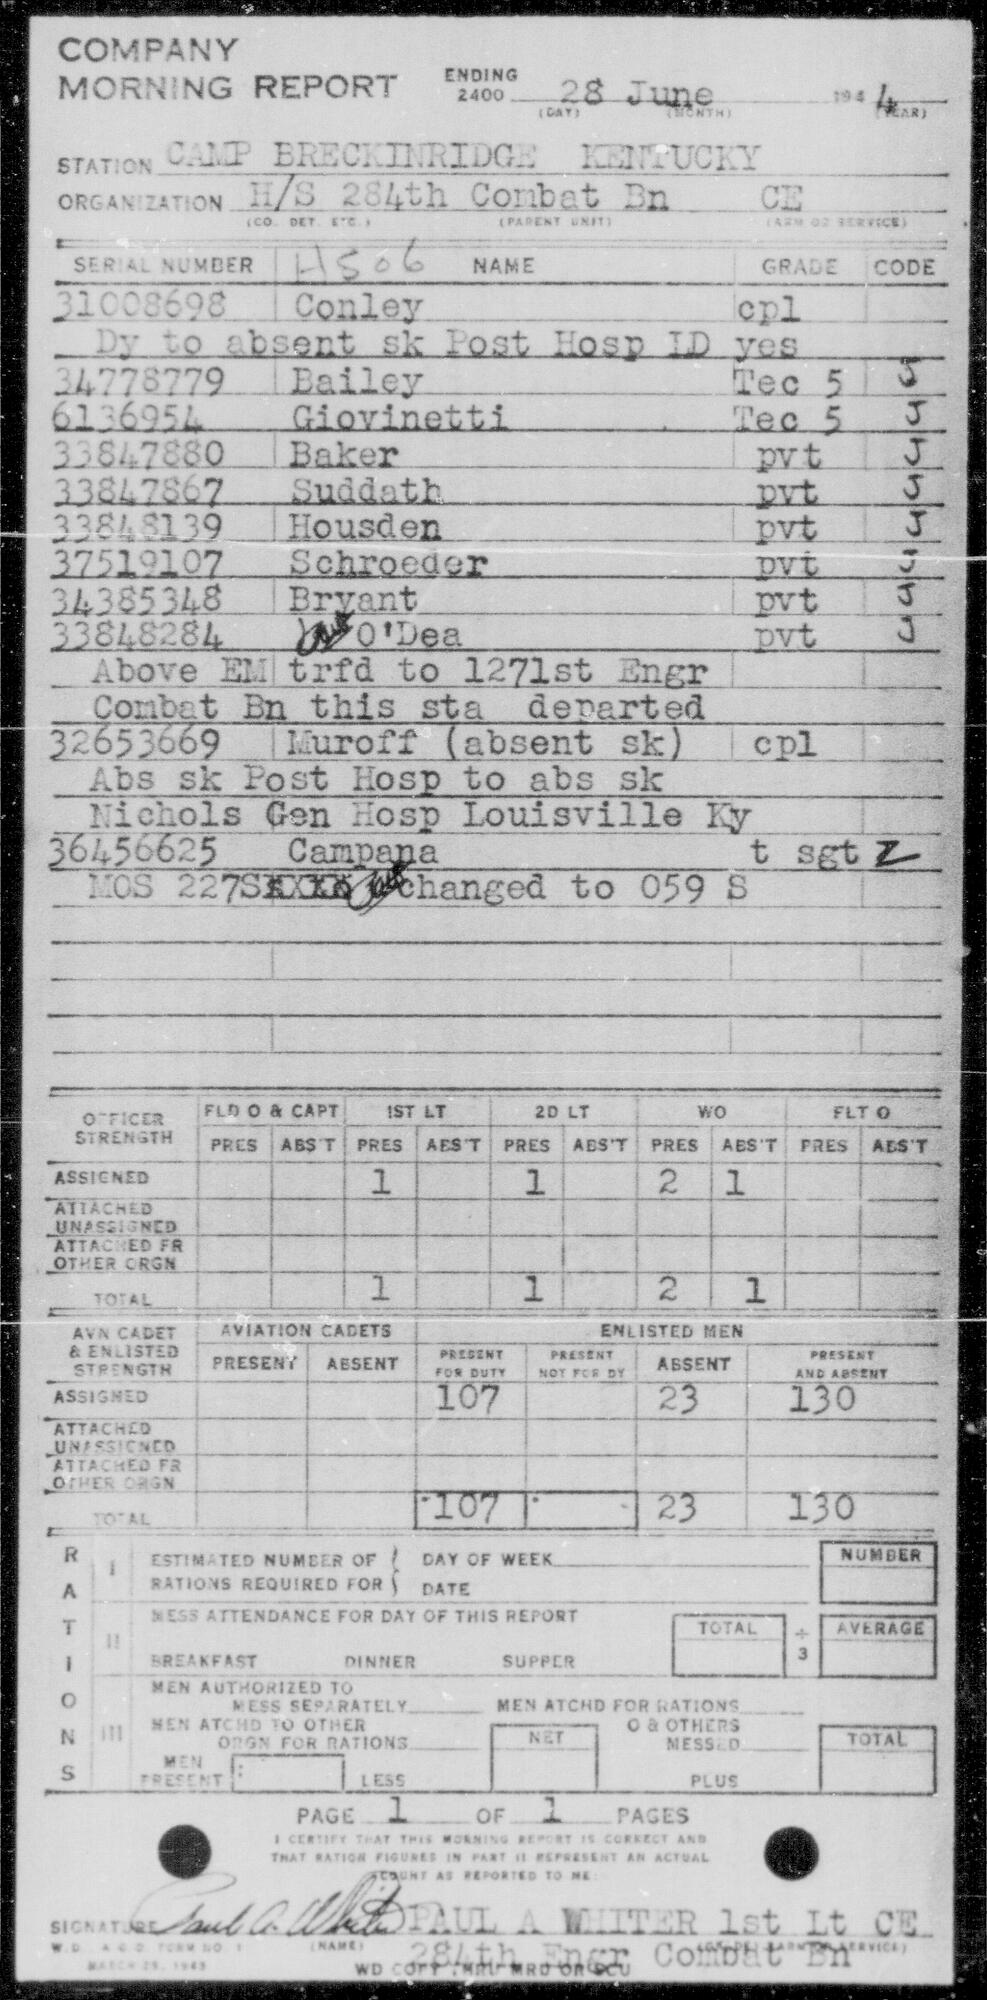 COMPANY
MORNING REPORT ENDING 2400 28 June 1944
(DAY) (MONTH) (YEAR)
STATION CAMP BRECKINRIDGE KENTUCKY
ORGANIZATION H/S 284th Combat Bn CE
(CO. DET. ETC.) (PARENT UNIT) (ARM OR SERVICE)
SERIAL NUMBER HS06 NAME GRADE CODE
31008698 Conley cpl
Dy to absent sk Post Hosp LD yes
34778779 Bailey Tec 5 J
6136954 Giovinetti Tec 5 J
33847880 Baker pvt J
33847867 Suddath pvt J
33848139 Housden pvt J
37519107 Schroeder pvt J
34385348 Bryant pvt J
33848284 O'Dea pvt J
Above EM trfd to 1271st Engr
Combat Bn this sta departed
32653669 Muroff (absent sk) cpl
Abs sk Post Hosp to abs sk
Nichols Gen Hosp Louisville Ky
36456625 Campana t sgt Z
MOS 227S changed to 059 S
OFFICER STRENGTH FLD O & CAPT 1ST LT 2D LT WO FLT O
PRES ABS'T PRES ABS'T PRES ABS'T PRES ABS'T PRES ABS'T
ASSIGNED 1 1 2 1
ATTACHED UNASSIGNED
ATTACHED FR OTHER ORGN
TOTAL 1 1 2 1
AVN CADET & ENLISTED STRENGTH AVIATION CADETS ENLISTED MEN
PRESENT ABSENT PRESENT FOR DUTY PRESENT NOT FOR DY ABSENT PRESENT AND ABSENT
ASSIGNED 107 23 130
ATTACHED UNASSIGNED
ATTACHED FR OTHER ORGN
TOTAL 107 23 130
RATIONS
I ESTIMATED NUMBER OF RATIONS REQUIRED FOR DAY OF WEEK DATE NUMBER
II MESS ATTENDANCE FOR DAY OF THIS REPORT TOTAL ÷ 3 AVERAGE
BREAKFAST DINNER SUPPER
III MEN AUTHORIZED TO MESS SEPARATELY MEN ATCHD FOR RATIONS
MEN ATCHD TO OTHER ORGN FOR RATIONS NET O & OTHERS MESSED TOTAL
MEN PRESENT LESS PLUS
PAGE 1 OF 1 PAGES
I CERTIFY THAT THIS MORNING REPORT IS CORRECT AND
THAT RATION FIGURES IN PART II REPRESENT AN ACTUAL
COUNT AS REPORTED TO ME:
SIGNATURE Paul A. Whiter PAUL A WHITER 1st Lt CE
W.D. A.G.O. FORM NO. 1 (NAME) 284th Engr Combat Bn
MARCH 25, 1943 WD COPY MRU MRD OR SCU